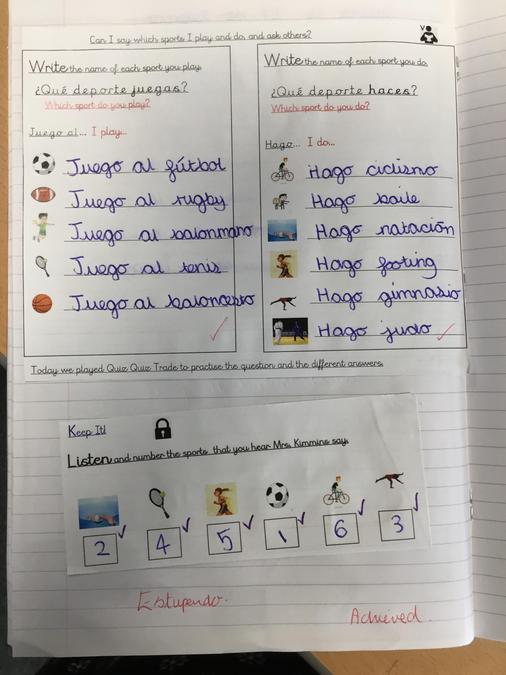 Can I say which sports I play and do, and ask others?
V
Write the name of each sport you play
¿Qué deporte juegas?
Which sport do you play?
Juego al... I play...
Juego al fútbol
Juego al rugby
Juego al balonmano
Juego al tenis
Juego al baloncesto
Write the name of each sport you do
¿Qué deporte haces?
Which sport do you do?
Hago... I do...
Hago ciclismo
Hago baile
Hago natación
Hago footing
Hago gimnasio
Hago judo
Today we played Quiz Quiz Trade to practise the question and the different answers.
Keep It!
Listen and number the sports that you hear Mrs. Kimmins say.
2 4 5 1 6 3
Estupendo.
Achieved.